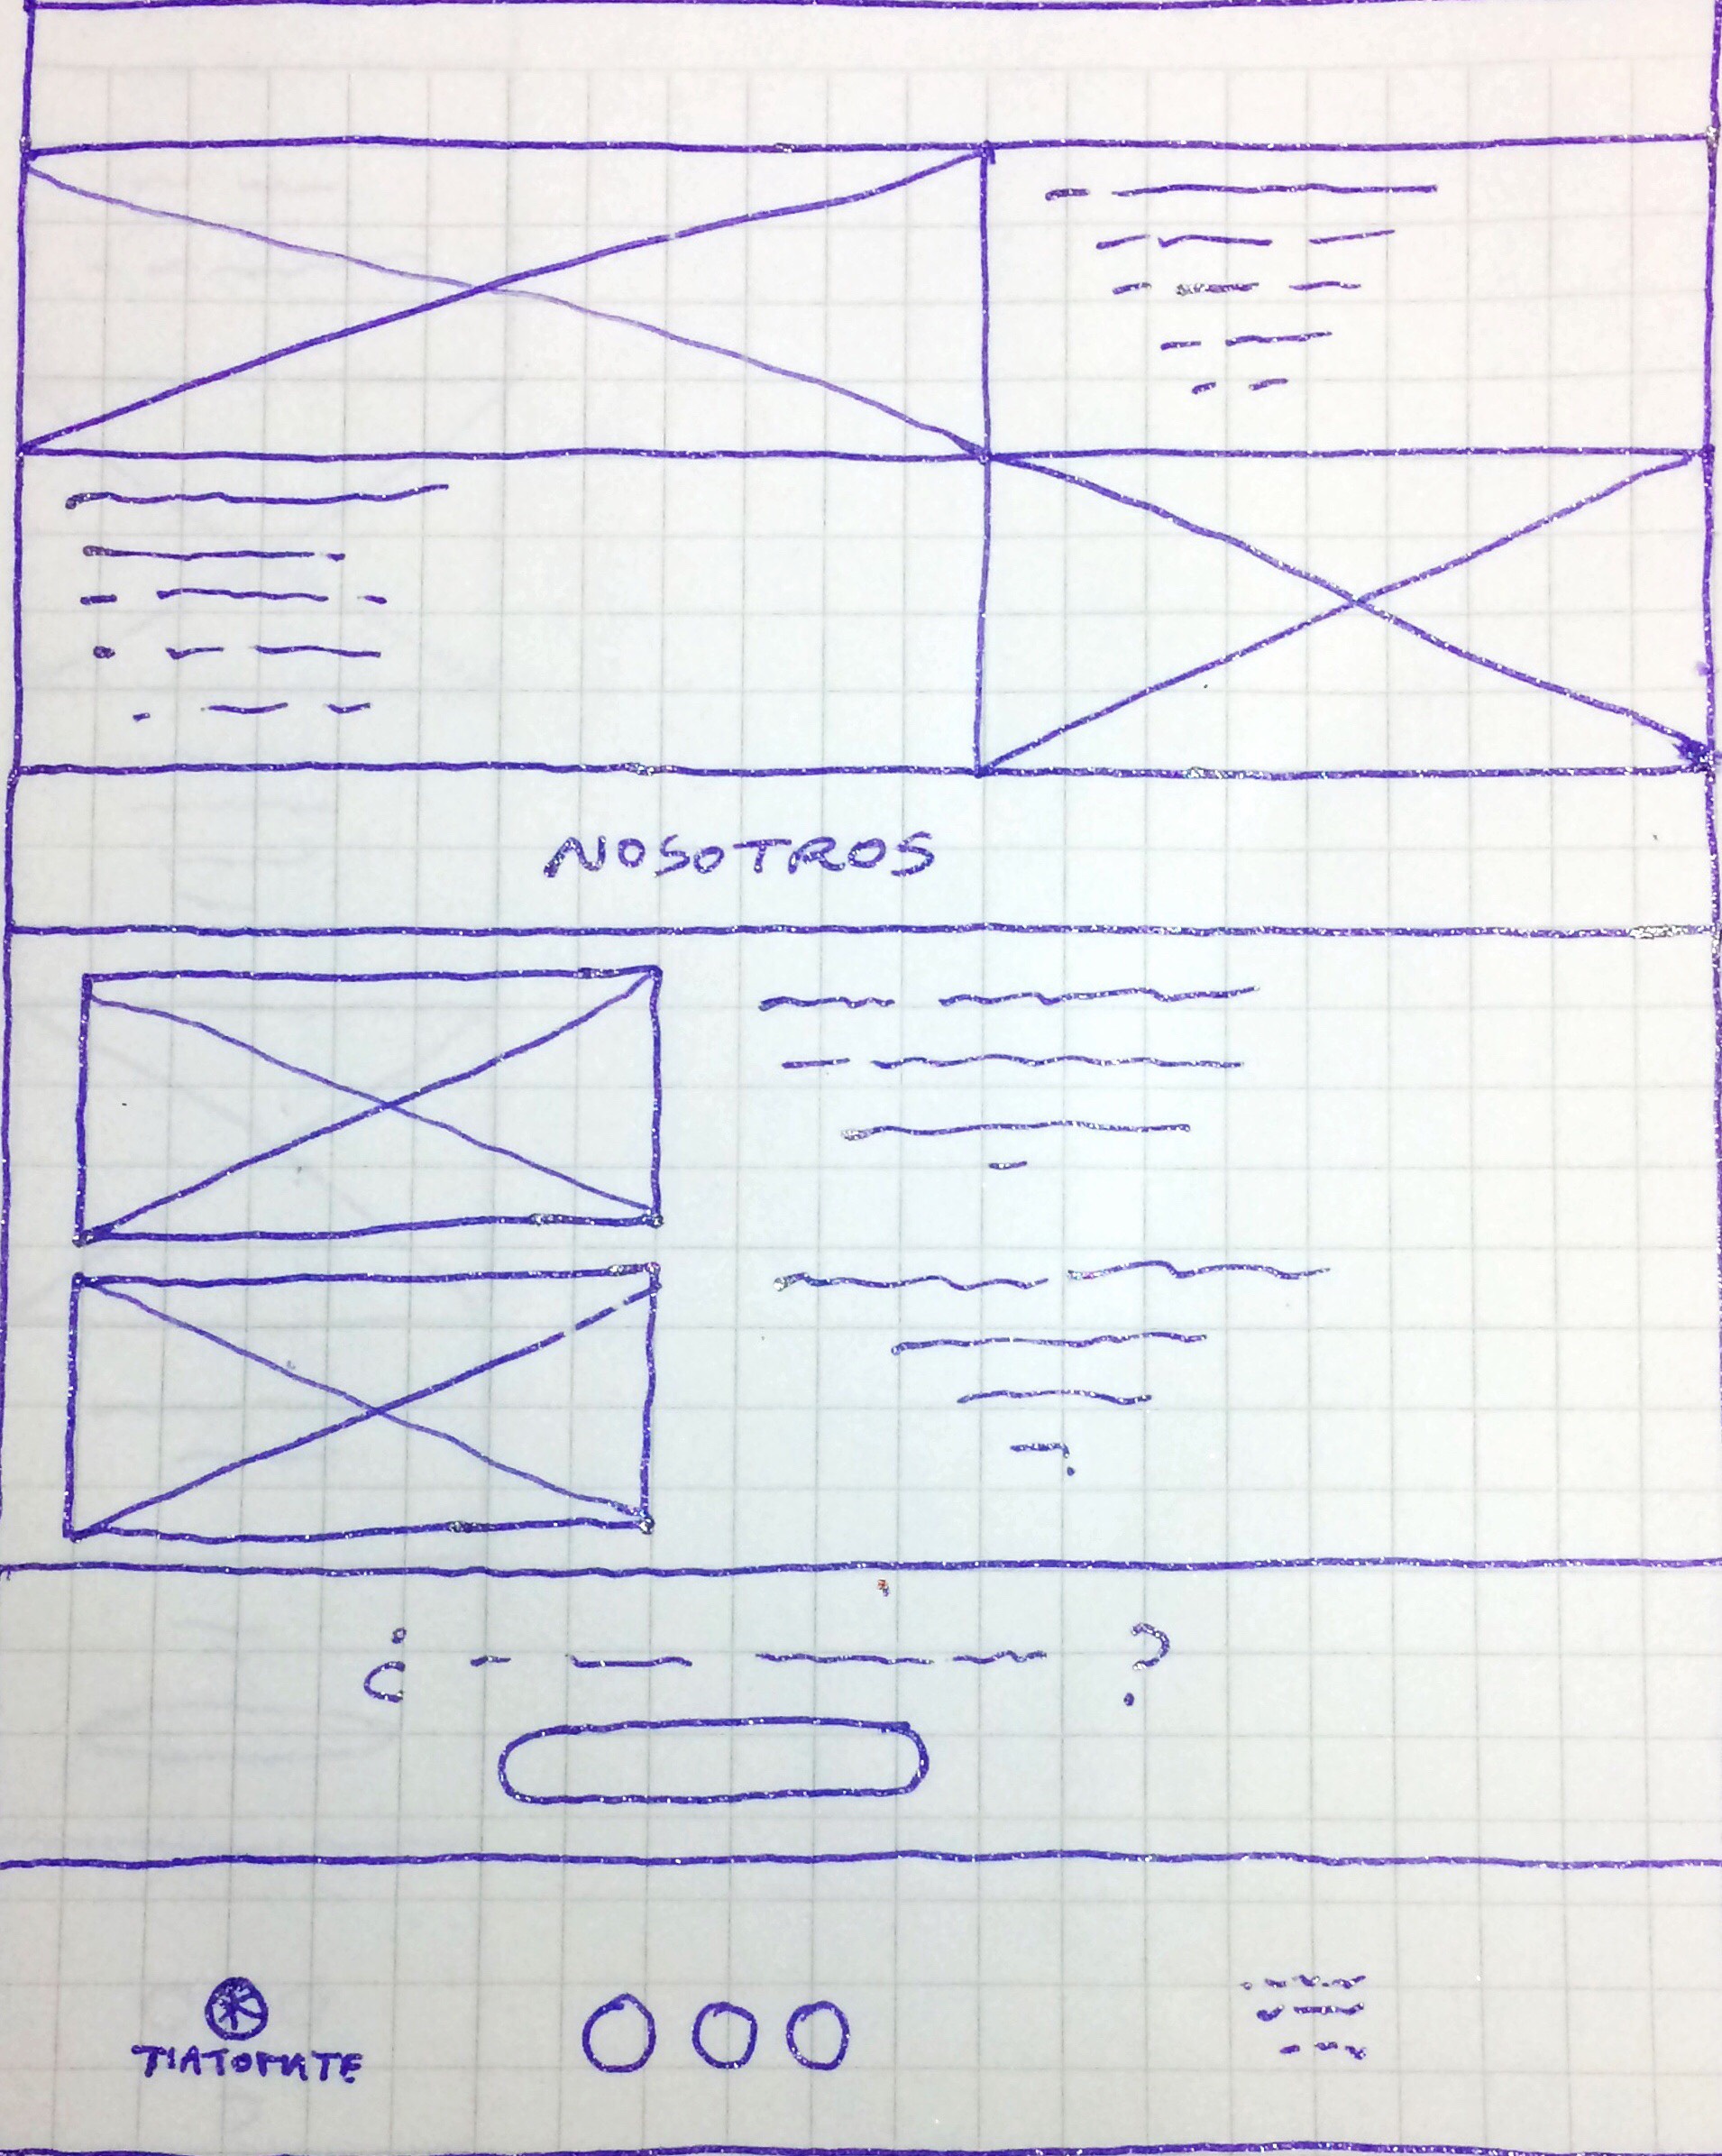 NOSOTROS
¿ ?
TIATOMATE